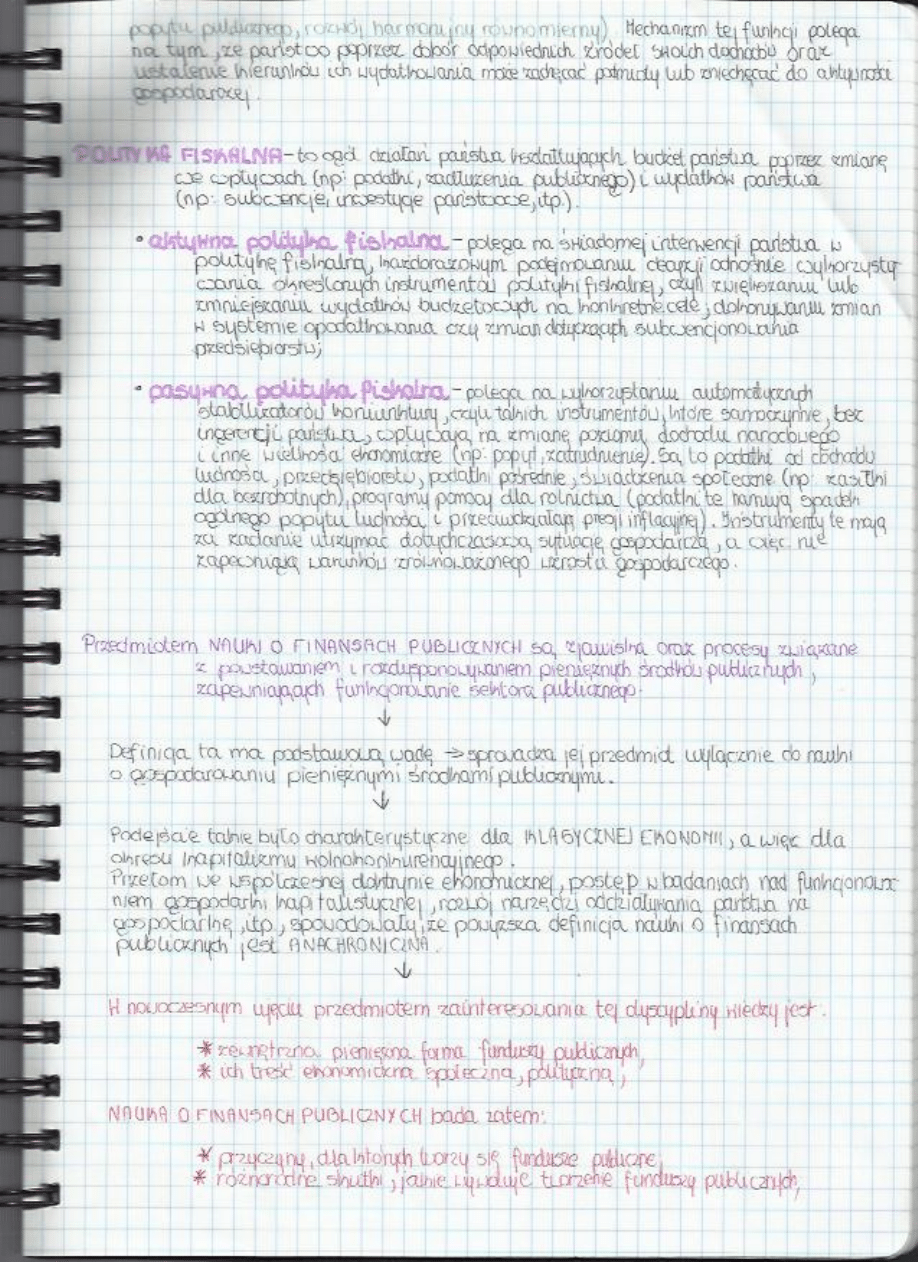 popytu publicznego, rozwój harmonijny równomierny). Mechanizm tej funkcji polega
na tym, że państwo poprzez dobór odpowiednich źródeł swoich dochodów oraz
ustalenie kierunków ich wydatkowania może zachęcać podmioty lub zniechęcać do aktywności
gospodarczej.
POLITYKA FISKALNA - to ogół działań państwa kształtujących budżet państwa poprzez zmianę
we wpływach (np: podatki, zadłużenia publicznego) i wydatków państwa
(np: subwencje, inwestycje państwowe, itp.).
• aktywna polityka fiskalna - polega na świadomej interwencji państwa w
politykę fiskalną, każdorazowym podejmowaniu decyzji odnośnie wykorzysty
wania określonych instrumentów polityki fiskalnej, czyli zwiększaniu lub
zmniejszaniu wydatków budżetowych na konkretne cele, dokonywaniu zmian
w systemie opodatkowania czy zmian dotyczących subwencjonowania
przedsiębiorstw;
• pasywna polityka fiskalna - polega na wykorzystaniu automatycznych
stabilizatorów koniunktury, czyli takich instrumentów, które samoczynnie, bez
ingerencji państwa, wpływają na zmianę poziomu dochodu narodowego
i inne wielkości ekonomiczne (np: popyt, zatrudnienie). Są to podatki od dochodu
ludności, przedsiębiorstw, podatki pośrednie, świadczenia społeczne (np: zasiłki
dla bezrobotnych), programy pomocy dla rolnictwa (podatki te hamują spadek
ogólnego popytu ludności i przeciwdziałają presji inflacyjnej). Instrumenty te mają
za zadanie utrzymać dotychczasową sytuację gospodarczą, a więc nie
zapewniają warunków zrównoważonego wzrostu gospodarczego.
Przedmiotem NAUKI O FINANSACH PUBLICZNYCH są zjawiska oraz procesy związane
z powstawaniem i rozdysponowywaniem pieniężnych środków publicznych,
zapewniających funkcjonowanie sektora publicznego.
↓
Definicja ta ma podstawową wadę → sprowadza jej przedmiot wyłącznie do nauki
o gospodarowaniu pieniężnymi środkami publicznymi.
↓
Podejście takie było charakterystyczne dla KLASYCZNEJ EKONOMII, a więc dla
okresu kapitalizmu wolnokonkurencyjnego.
Przełom we współczesnej doktrynie ekonomicznej, postęp w badaniach nad funkcjonowa
niem gospodarki kapitalistycznej, rozwój narzędzi oddziaływania państwa na
gospodarkę, itp, spowodowały, że powyższa definicja nauki o finansach
publicznych jest ANACHRONICZNA.
↓
W nowoczesnym ujęciu przedmiotem zainteresowania tej dyscypliny wiedzy jest:
* zewnętrzna pieniężna forma funduszy publicznych,
* ich treść ekonomiczna społeczna, polityczna,
NAUKA O FINANSACH PUBLICZNYCH bada zatem:
* przyczyny, dla których tworzy się fundusze publiczne,
* różnorodne skutki, jakie wywołuje tworzenie funduszy publicznych,